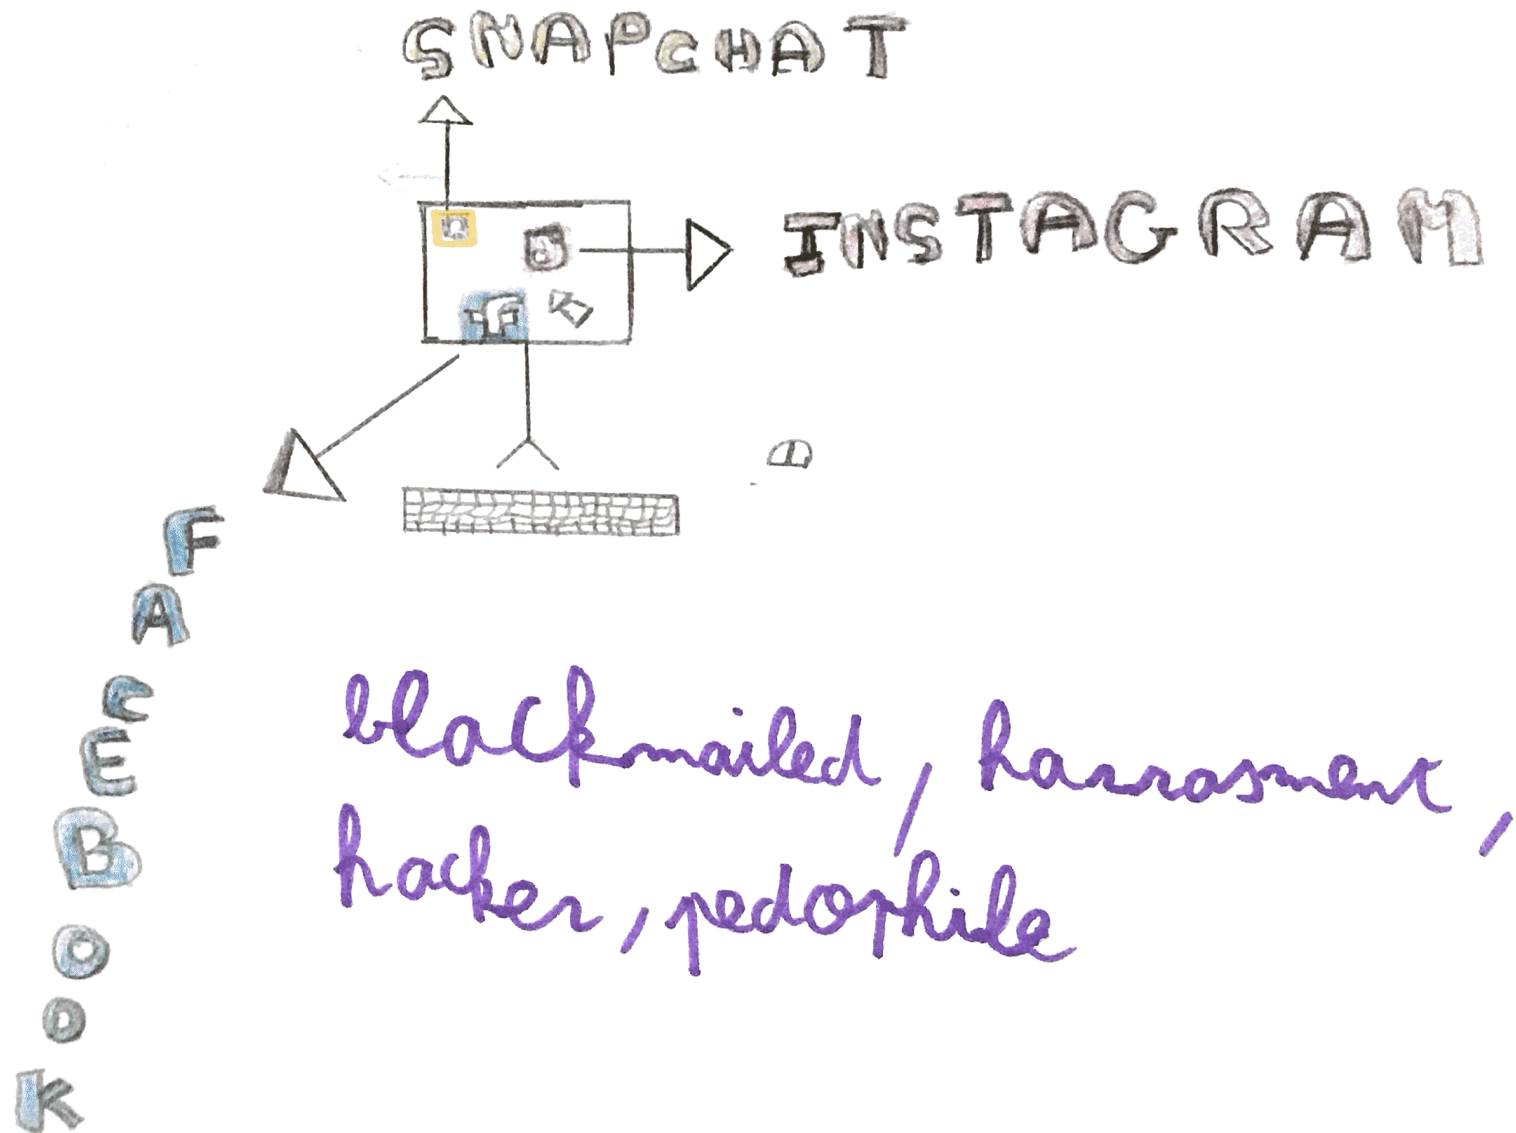 SNAPCHAT
INSTAGRAM
f
FACEBOOK
blackmailed, harrasment,
hacker, pedophile